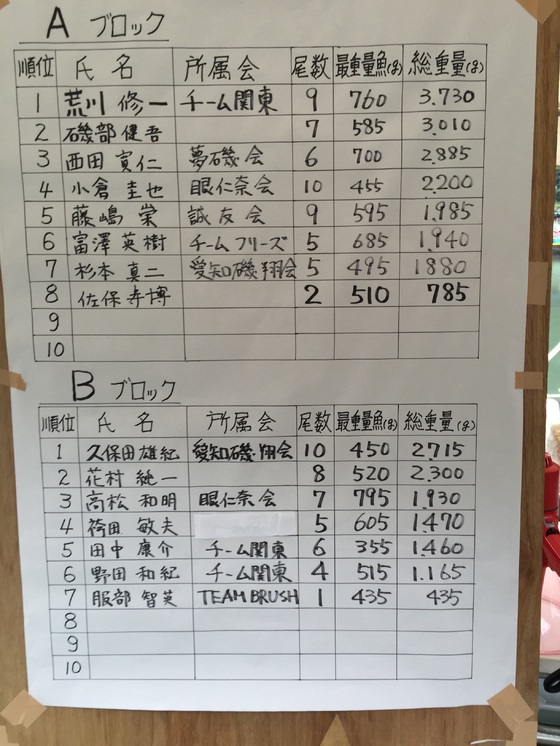 A ブロック
順位 氏名 所属会 尾数 最重量魚(g) 総重量(g)
1 荒川 修一 チーム関東 9 760 3.730
2 磯部 健吾 7 585 3,010
3 西田 寛仁 夢磯会 6 700 2,885
4 小倉 圭也 眼仁奈会 10 455 2,200
5 藤嶋 崇 誠友会 9 595 1,985
6 富澤 英樹 チームフリーズ 5 685 1,940
7 杉本 真二 愛知磯・翔会 5 495 1880
8 佐保 寿博 2 510 785
9
10
B ブロック
順位 氏名 所属会 尾数 最重量魚(g) 総重量(g)
1 久保田 雄紀 愛知磯・翔会 10 450 2.715
2 花村 純一 8 520 2,300
3 高松 和明 眼仁奈会 7 795 1,930
4 袴田 敏夫 5 605 1,470
5 田中 康介 チーム関東 6 355 1,460
6 野田 和紀 チーム関東 4 515 1.165
7 服部 智英 TEAM BRUSH 1 435 435
8
9
10